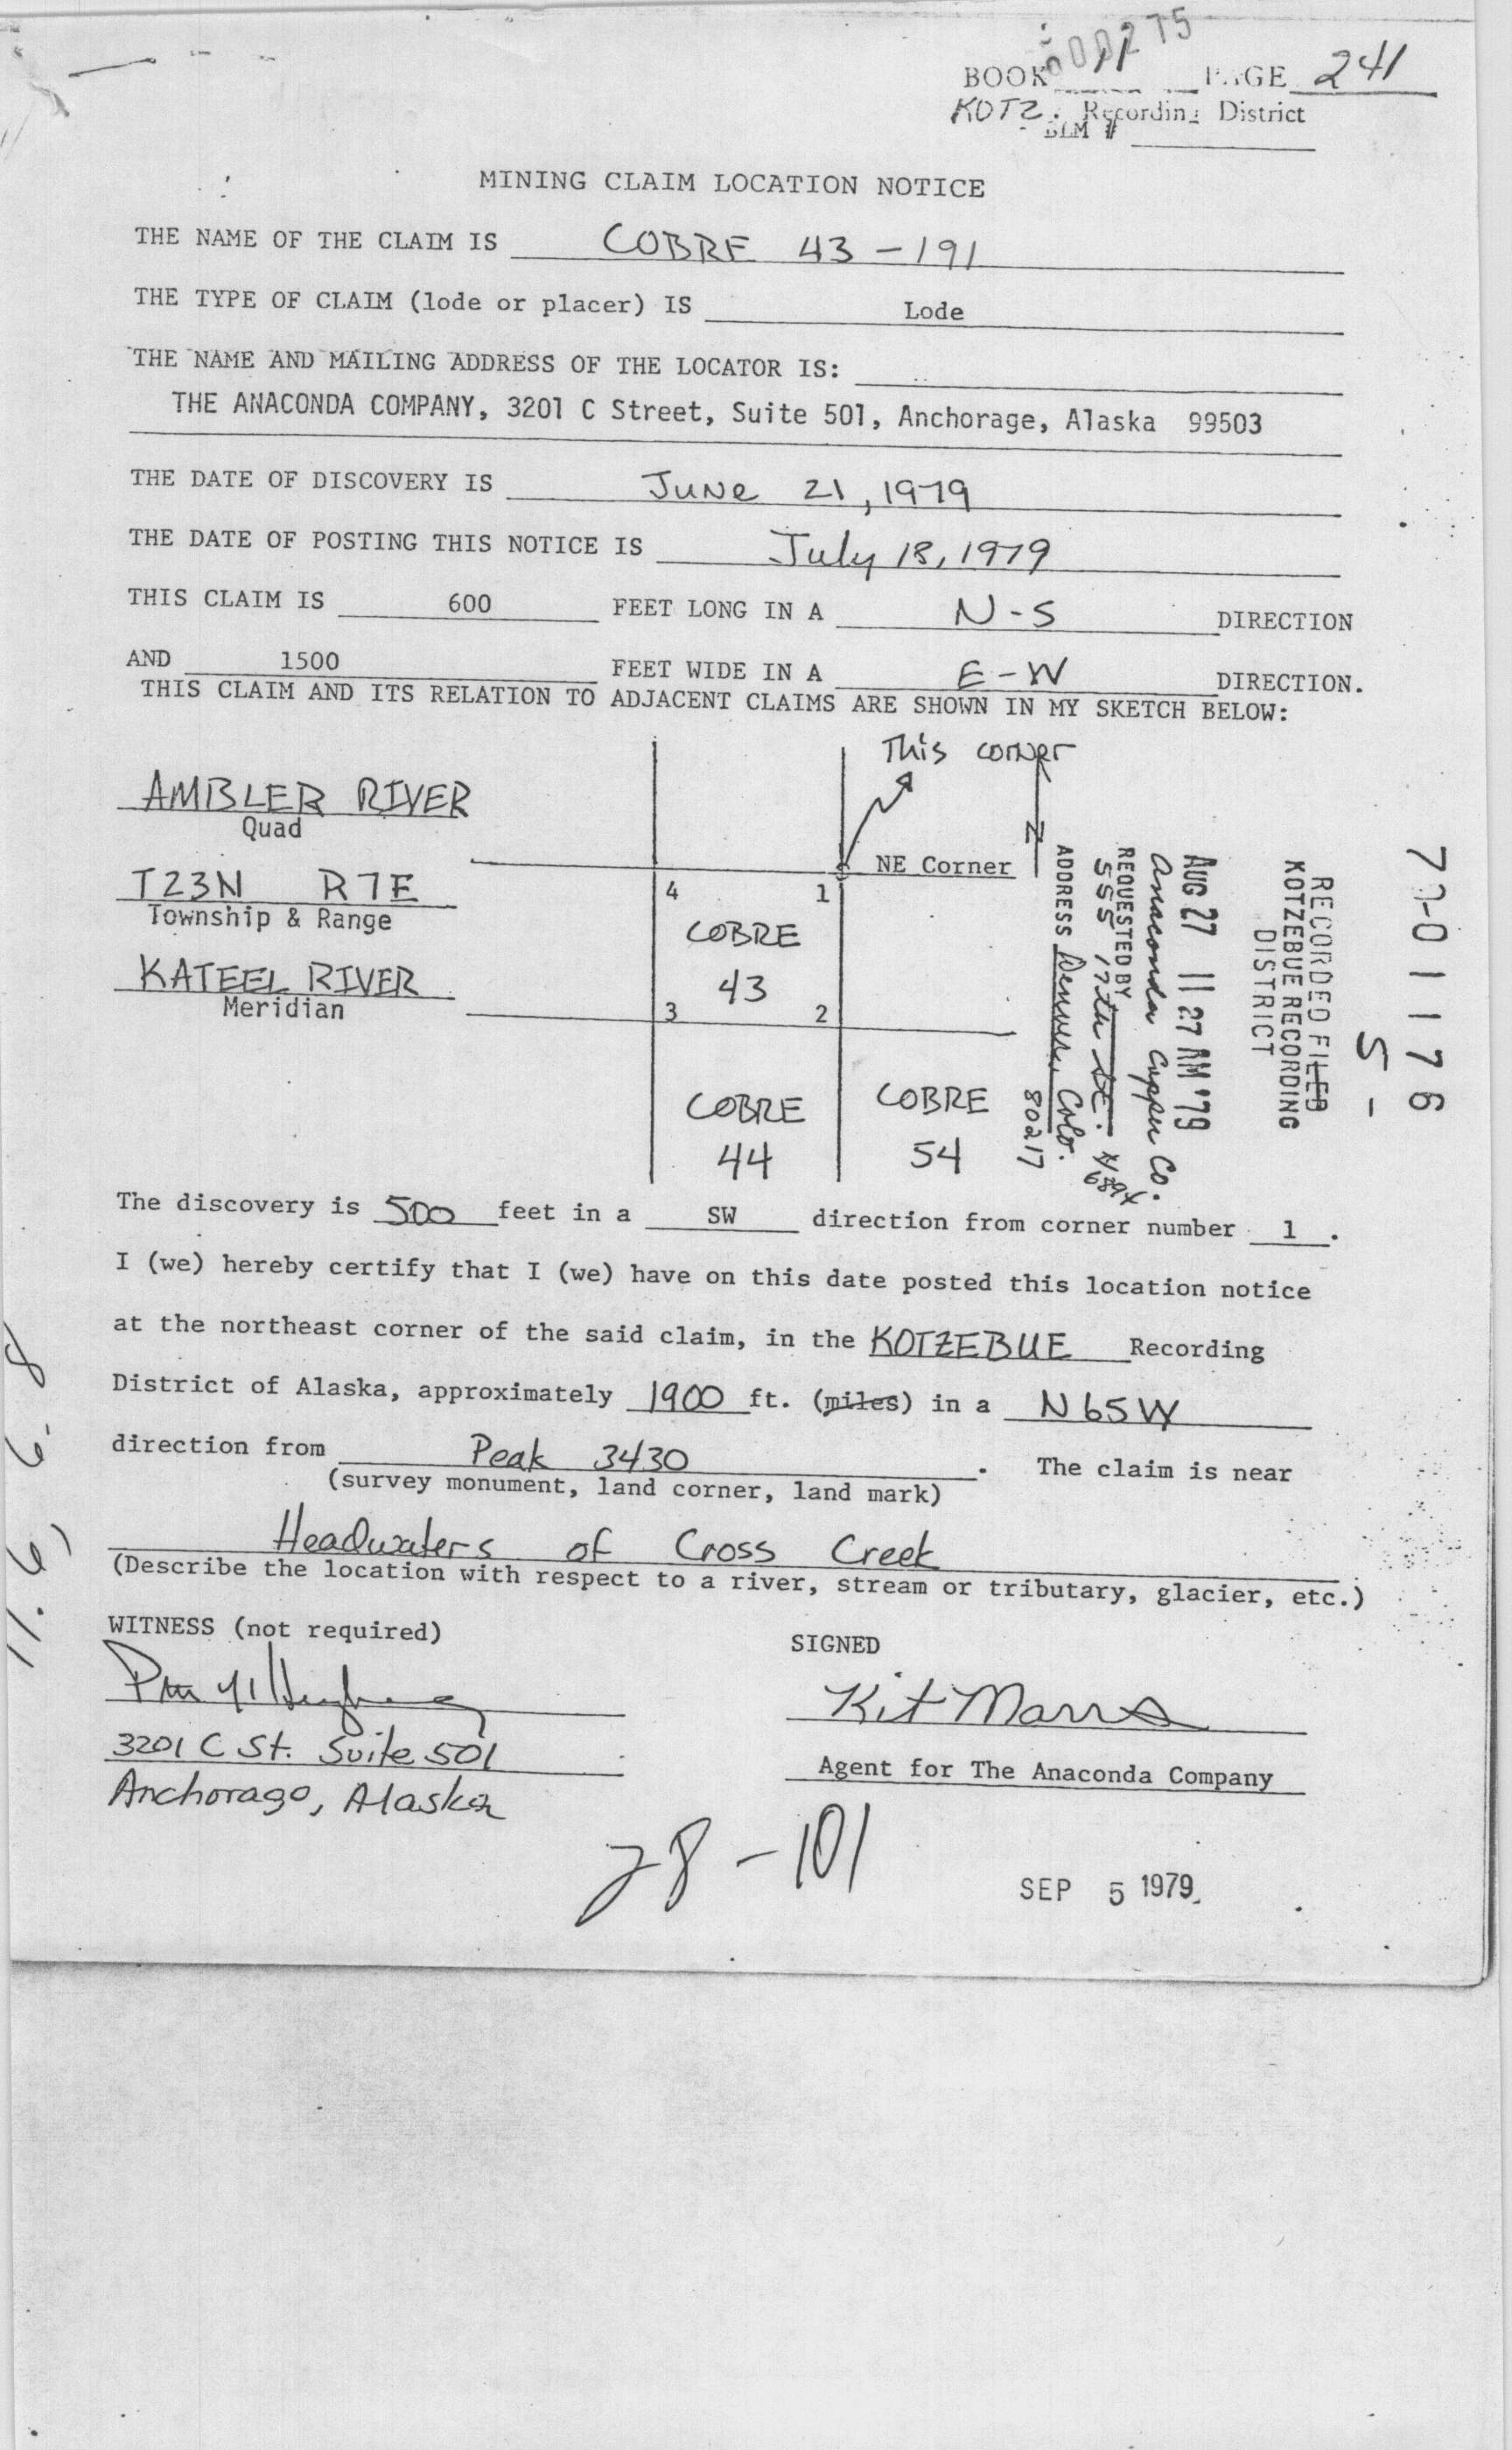 000275
BOOK PAGE 241
KOTZ. Recording District
BLM #
MINING CLAIM LOCATION NOTICE
THE NAME OF THE CLAIM IS COBRE 43-191
THE TYPE OF CLAIM (lode or placer) IS Lode
THE NAME AND MAILING ADDRESS OF THE LOCATOR IS:
THE ANACONDA COMPANY, 3201 C Street, Suite 501, Anchorage, Alaska 99503
THE DATE OF DISCOVERY IS June 21, 1979
THE DATE OF POSTING THIS NOTICE IS July 18, 1979
THIS CLAIM IS 600 FEET LONG IN A N-S DIRECTION
AND 1500 FEET WIDE IN A E-W DIRECTION.
THIS CLAIM AND ITS RELATION TO ADJACENT CLAIMS ARE SHOWN IN MY SKETCH BELOW:
This corner
AMBLER RIVER
Quad
N
NE Corner
T23N R7E
Township & Range
4 1
COBRE
43
KATEEL RIVER
Meridian
3 2
COBRE
44
COBRE
54
79-01176
S-
RECORDED FILED
KOTZEBUE RECORDING
DISTRICT
AUG 27 11 27 AM '79
Anaconda Copper Co.
REQUESTED BY
555 17th St.
ADDRESS Denver, Colo.
80217
The discovery is 500 feet in a SW direction from corner number 1.
I (we) hereby certify that I (we) have on this date posted this location notice
at the northeast corner of the said claim, in the KOTZEBUE Recording
District of Alaska, approximately 1900 ft. (miles) in a N65W
direction from Peak 3430. The claim is near
(survey monument, land corner, land mark)
Headwaters of Cross Creek
(Describe the location with respect to a river, stream or tributary, glacier, etc.)
WITNESS (not required)
SIGNED
Kit Marrs
3201 C St. Suite 501
Agent for The Anaconda Company
Anchorage, Alaska
28-101
SEP 5 1979